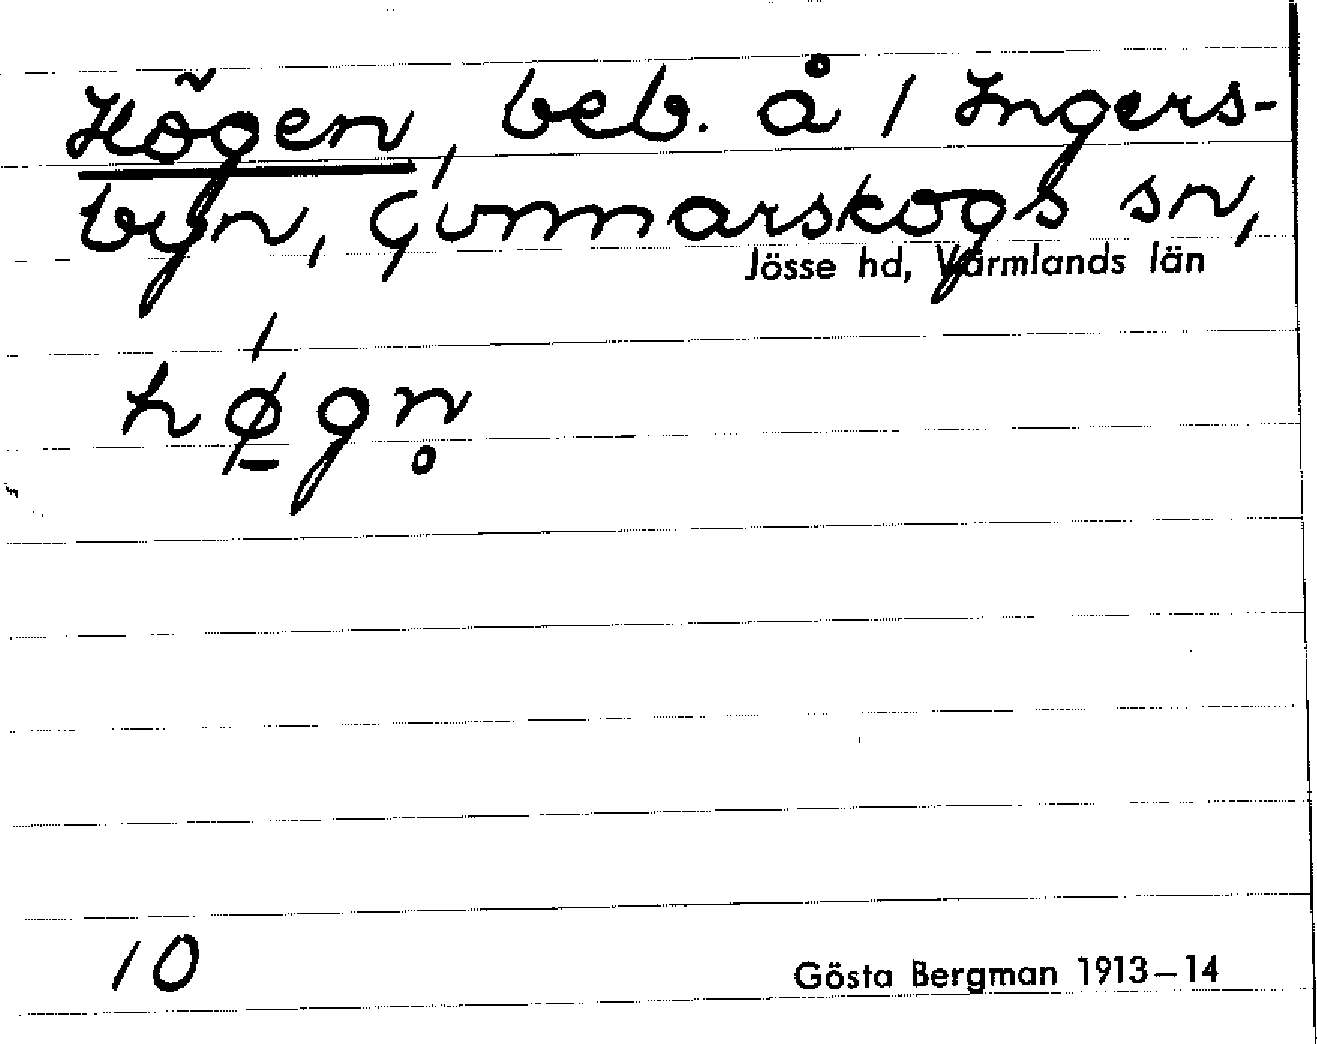 Högen, beb. å 1 Ingers-
byn, Gunnarskogs sn,
Jösse hd, Värmlands län
hǿ̱gn̥
10
Gösta Bergman 1913–14